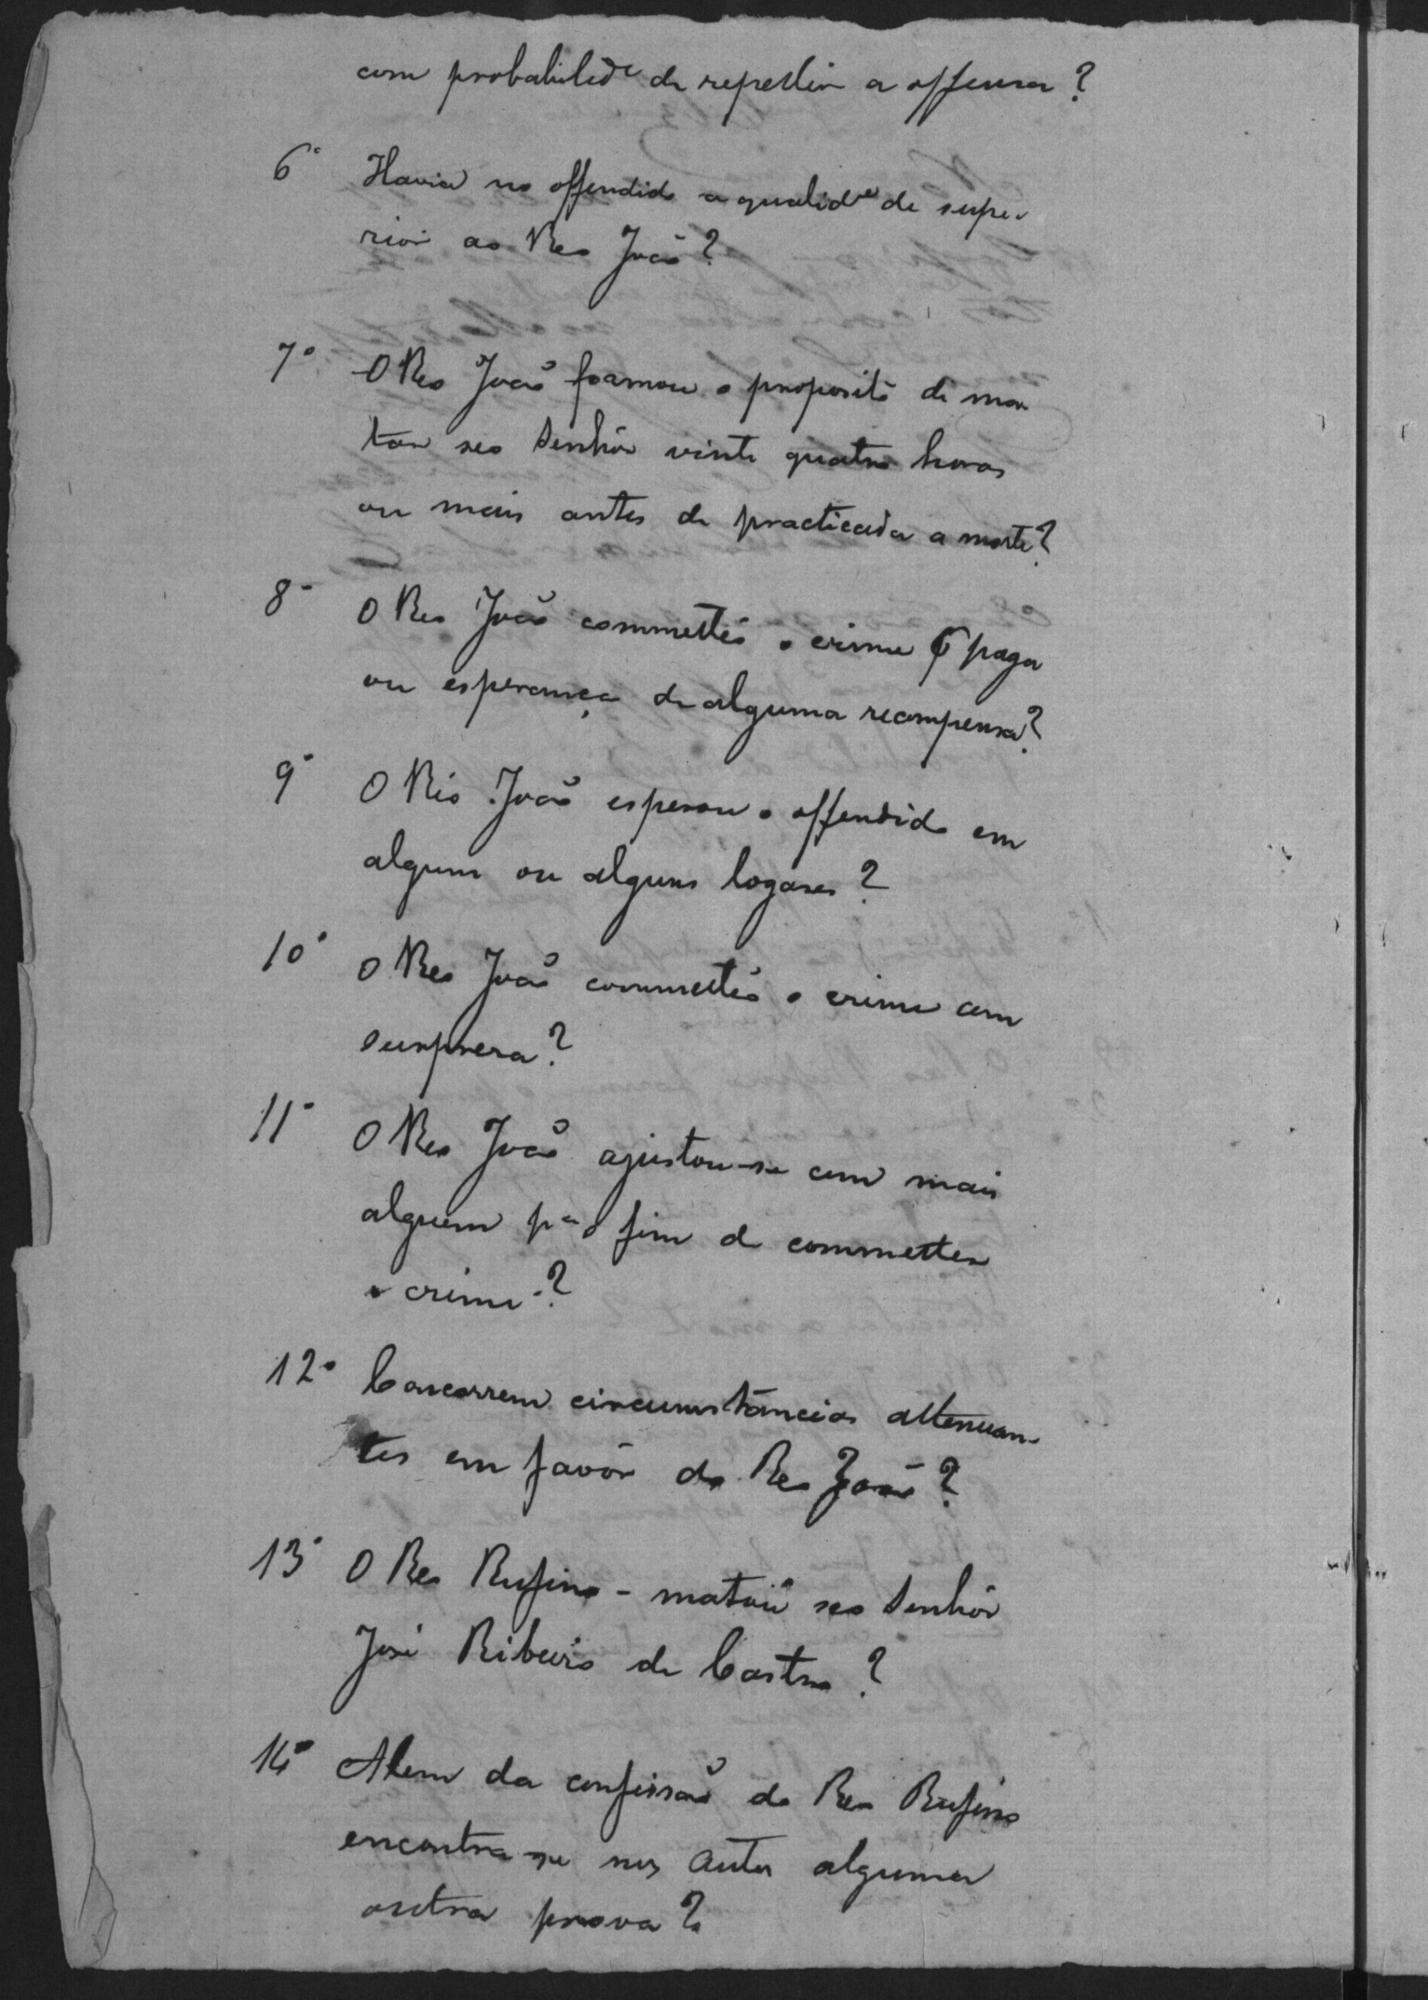 com probabilid.e de repellir a offensa?
6º Havia no offendido a qualid.e de supe-
rior ao Reo João?
7º O Reo João formou o proposito de ma-
tar seo Senhôr vinte quatro horas
ou mais antes de practicada a morte?
8º O Reo João commetteo o crime p paga
ou esperança de alguma recompensa?
9º O Réo João esperou o offendido em
algum ou alguns logares?
10º O Reo João commetteo o crime com
surpresa?
11º O Reo João ajustou-se com mais
alguem p.a o fim de commetter
o crime?
12º Concorrem circumstâncias attenuan-
tes em favôr do Reo João?
13º O Reo Rufino - matou seo Senhôr
José Ribeiro de Castro?
14º Alem da confissão do Reo Rufino
encontra-se nos autos alguma
outra prova?